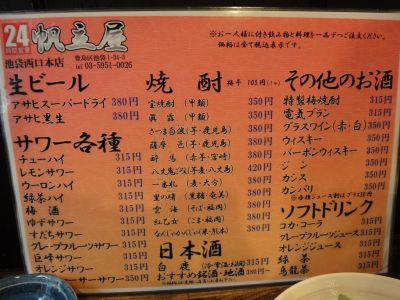 24
時間営業
帆立屋
豊島区池袋1-34-5
池袋西口本店
tel 03-5951-0026
※お一人様に付き飲み物と料理を一品ずつご注文ください。
価格は全て税込表示です。
生ビール
アサヒスーパードライ 380円
アサヒ黒生 380円
サワー各種
チューハイ 315円
レモンサワー 315円
ウーロンハイ 315円
緑茶ハイ 315円
梅酒 315円
ゆずサワー 315円
すだちサワー 315円
グレープフルーツサワー 315円
巨峰サワー 315円
オレンジサワー 315円
サワー 350円
焼酎 梅干 105円
宝焼酎 (甲類) 350円
眞露 (甲類) 350円
さつま白波(芋・鹿児島) 350円
薩摩邑(芋・鹿児島) 350円
酔馬(芋・宮崎) 350円
八丈鬼ごろし(芋麦・八丈島) 350円
一番札 (麦・大分) 350円
里の曙 (黒糖・奄美) 380円
雲海 (そば・福岡) 350円
紅乙女 (ごま・福岡) 350円
なんじゃこりゃ(米・熊本) 380円
日本酒
白鹿 315円
おすすめ銘酒・地酒 380円
その他のお酒
特製梅焼酎 315円
電気ブラン 315円
グラスワイン(赤・白) 350円
ウィスキー 350円
バーボンウィスキー 350円
ジン 315円
カンス 315円
カンパリ 350円
ソフトドリンク
コカ・コーラ 315円
グレープフルーツジュース 315円
オレンジジュース 315円
緑茶 315円
烏龍茶 315円